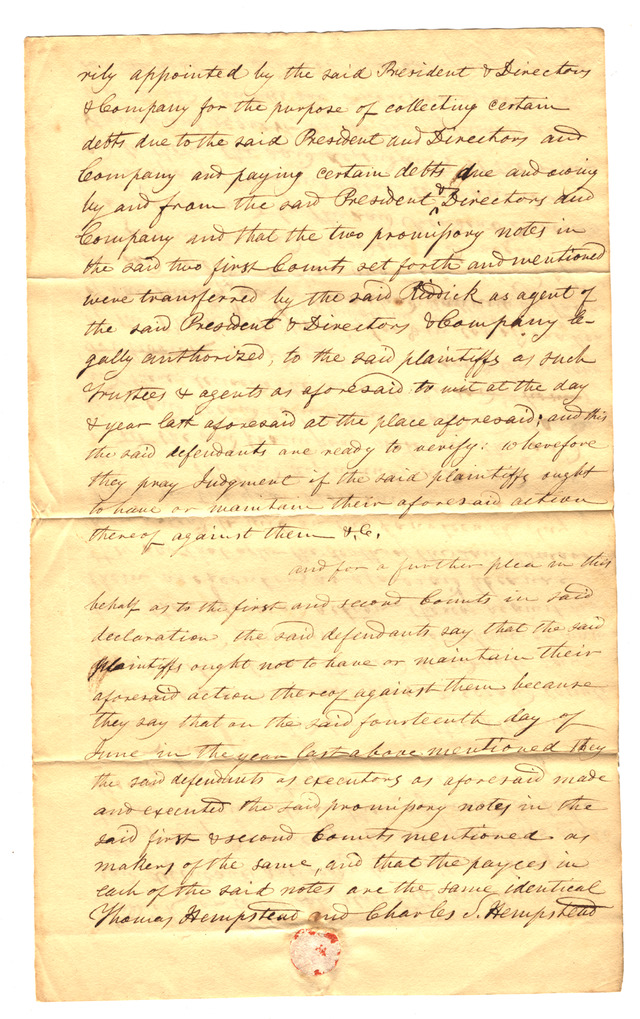 rily appointed by the said President & Directors
& Company for the purpose of collecting certain
debts due to the said President and Directors and
Company and paying certain debts due and owing
by and from the said President & Directors and
Company and that the two promissory notes in
the said two first Counts set forth and mentioned
were transferred by the said Riddick as agent of
the said President & Directors & Company le-
gally authorized, to the said plaintiffs as such
Trustees & agents as aforesaid to wit at the day
& year last aforesaid at the place aforesaid; and this
the said defendants are ready to verify: wherefore
they pray Judgment if the said plaintiffs ought
to have or maintain their aforesaid action
thereof against them &.C.
and for a further plea in this
behalf as to the first and second Counts in said
declaration, the said defendants say that the said
plaintiffs ought not to have or maintain their
aforesaid action thereof against them because
they say that on the said fourteenth day of
June in the year last above mentioned they
the said defendants as executors as aforesaid made
and executed the said promissory notes in the
said first & second Counts mentioned as
makers of the same, and that the payees in
each of the said notes are the same identical
Thomas Hempstead and Charles S. Hempstead